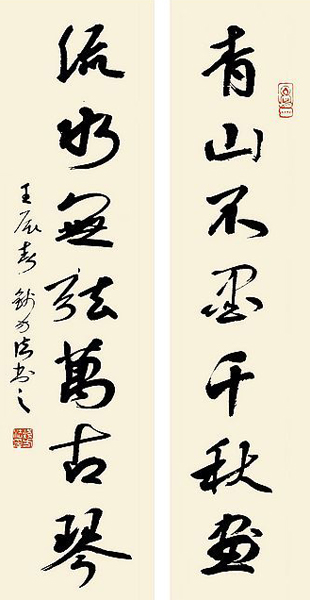 青山不墨千秋畫
流水無弦萬古琴
壬辰春書之